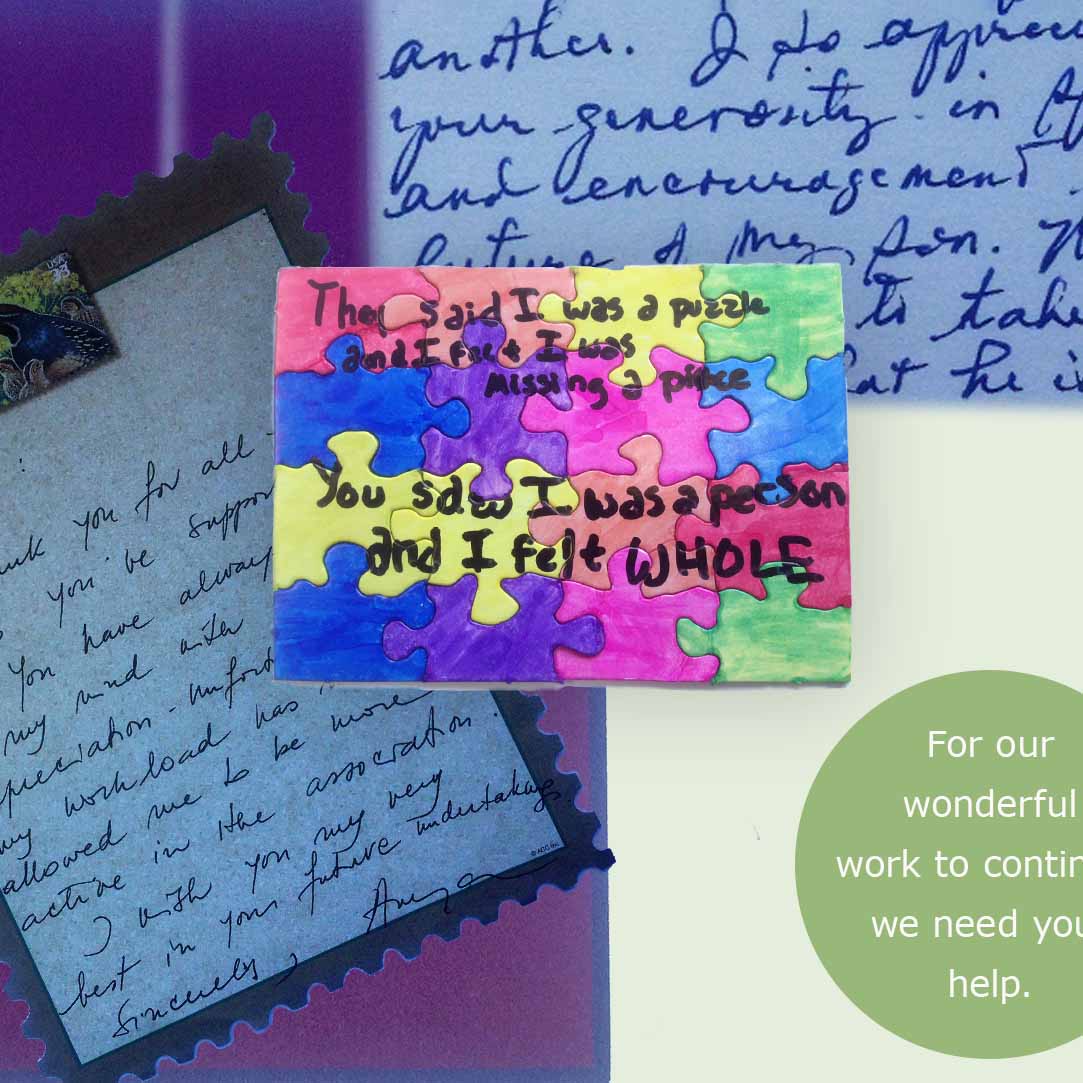 another. I so apprec
your generosity in
and encouragement
future of my son.
to take
at he i
USA
33
They said I was a puzzle
and I felt I was
missing a piece
You saw I was a person
and I felt WHOLE
you for all
you've suppor
You have alway
my mind with
preciation - unfort
my workload has
allowed me to be more
active in the association.
I wish you my very
best in your future undertakings.
Sincerely,
For our
wonderful
work to contin
we need you
help.